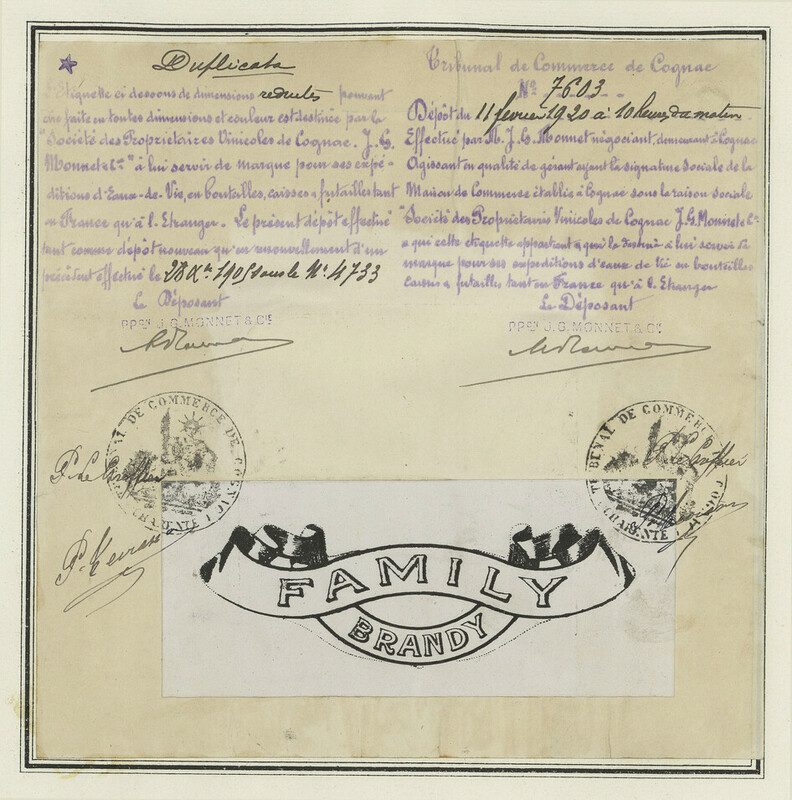 Duplicata
L'étiquette ci dessous de dimensions reduites pouvant
être faite en toutes dimensions et couleur est destinée par la
"Société des Propriétaires Vinicoles de Cognac. J. G.
Monnet & Cie" à lui servir de marque pour ses expé-
ditions d'Eaux-de-Vie, en bouteilles, caisses & futailles tant
en France qu'à l'Etranger. Le présent dépôt effectué
tant comme dépôt nouveau qu'en renouvellement d'un
précédent effectué le 28 Xbre 1905 sous le No 4733
Le Déposant
PPON J. G. MONNET & CIE
Tribunal de Commerce de Cognac
No 7603
Dépôt du 11 fevrier 1920 à 10 heures du matin
Effectué par M. J. G. Monnet négociant, demeurant à Cognac
Agissant en qualité de gérant ayant la signature sociale de la
Maison de Commerce établie à Cognac sous la raison sociale
"Société des Propriétaires Vinicoles de Cognac J. G. Monnet & Cie
à qui cette étiquette appartient & qui la à lui servir de
marque pour ses expéditions d'eaux de Vie en bouteilles
caisses & futailles tant en France qu'à l'Etranger
Le Déposant
PPON J. G. MONNET & CIE
TRIBUNAL DE COMMERCE DE COGNAC
CHARENTE
P. Le Greffier
TRIBUNAL DE COMMERCE
CHARENTE
P. Le Greffier
FAMILY
BRANDY